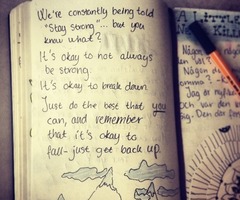 We're constantly being told
"Stay strong".... but you
know what?
It's okay to not always
be strong.
It's okay to break down.
Just do the best that you
can, and remember
that it's okay to
fall - just get back up.
A Little
Någon d
Någon
emma?
Jag är myl
och var den b
sig. Den där for